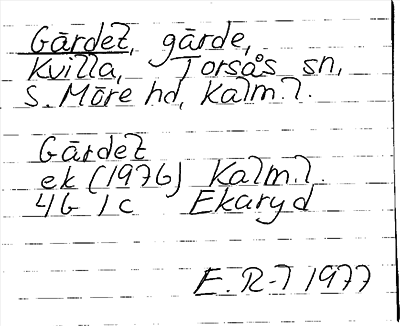 Gärdet, gärde,
Kvilla, Torsås sn,
S. Möre hd, Kalm.l.
Gärdet
ek (1976) Kalm.l.
4G 1c Ekaryd
E.R-T 1977